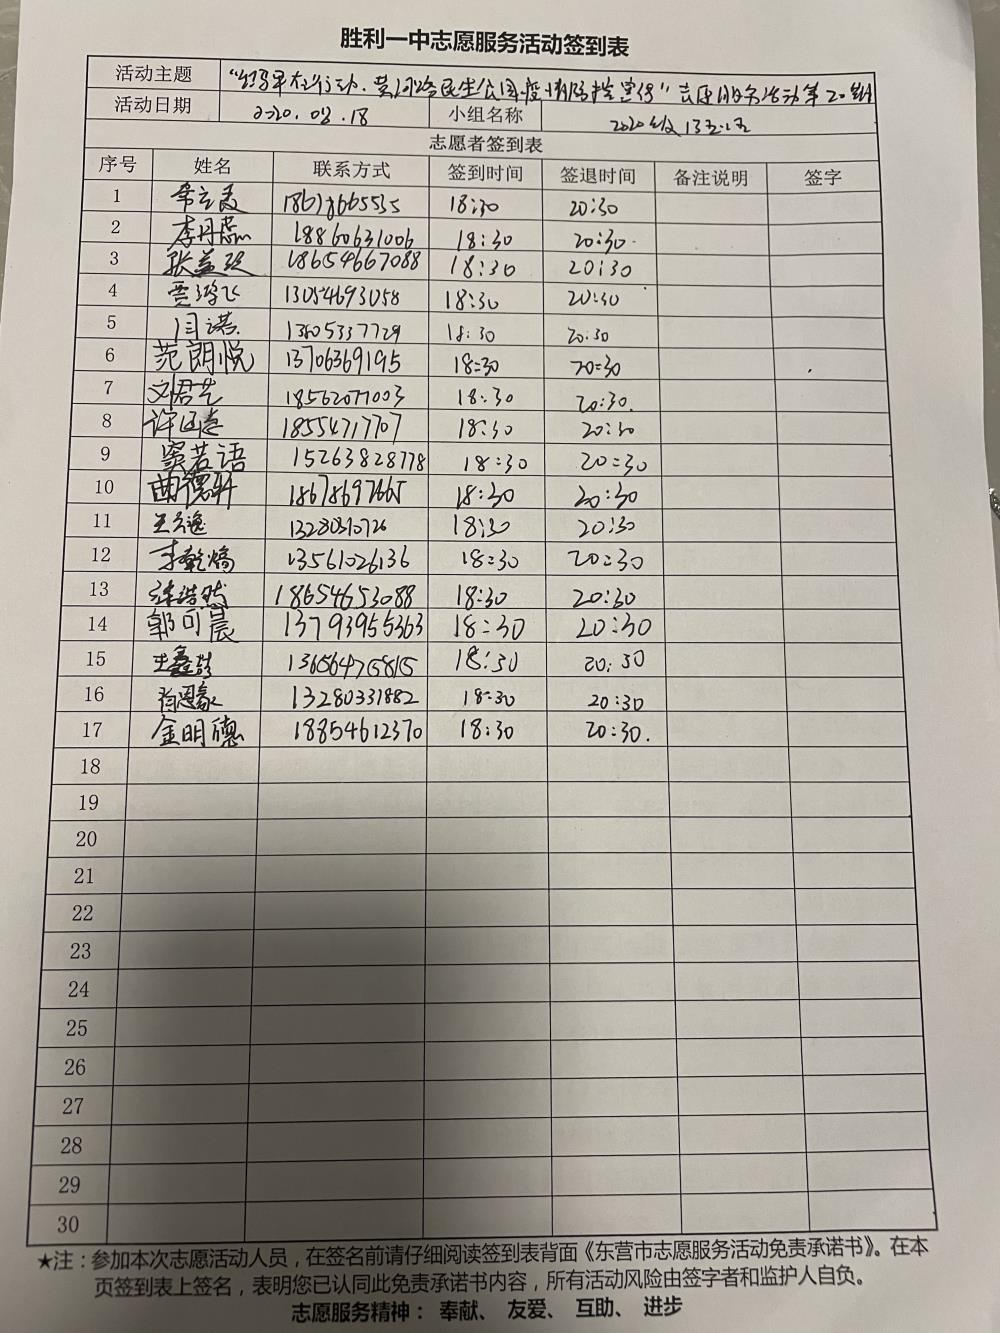 胜利一中志愿服务活动签到表
活动主题 志愿服务活动第20组
活动日期 2020.08.18 小组名称 2020级13
志愿者签到表
序号 姓名 联系方式 签到时间 签退时间 备注说明 签字
1 18:30 20:30
2 李丹蕊 18860631006 18:30 20:30
3 张益 18654667088 18:30 20:30
4 贾鸿飞 13054693058 18:30 20:30
5 闫诺 13605337729 18:30 20:30
6 范朗悦 13706369195 18:30 20:30
7 刘君艺 18562077003 18:30 20:30
8 许 18554717707 18:30 20:30
9 窦若语 15263828778 18:30 20:30
10 曲德轩 18678697665 18:30 20:30
11 逸 13280310726 18:30 20:30
12 李乾熵 13561026136 18:30 20:30
13 浩然 18654653088 18:30 20:30
14 郭可晨 13793955363 18:30 20:30
15 王鑫 13656475815 18:30 20:30
16 13280331882 18:30 20:30
17 金明德 18854612370 18:30 20:30
18
19
20
21
22
23
24
25
26
27
28
29
30
★注：参加本次志愿活动人员，在签名前请仔细阅读签到表背面《东营市志愿服务活动免责承诺书》。在本
页签到表上签名，表明您已认同此免责承诺书内容，所有活动风险由签字者和监护人自负。
志愿服务精神： 奉献、 友爱、 互助、 进步